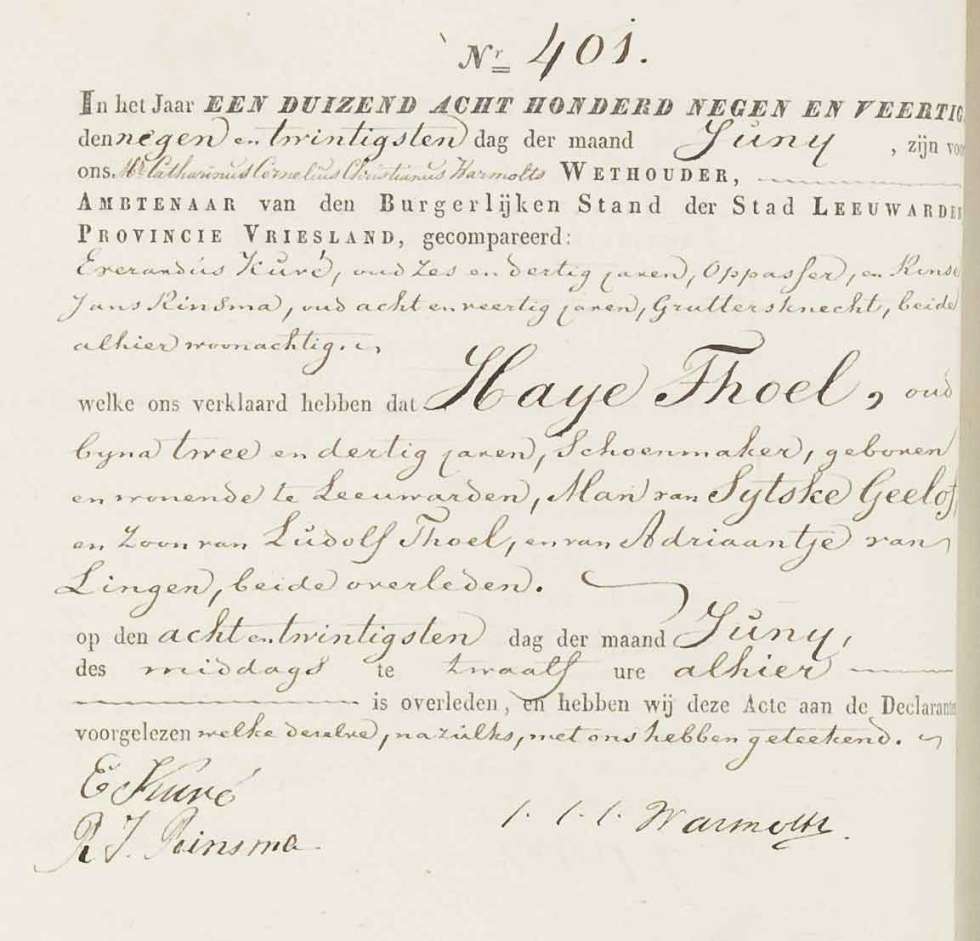 Nr 401.
In het Jaar EEN DUIZEND ACHT HONDERD NEGEN EN VEERTIG
den negen en twintigsten dag der maand Juny , zijn voor
ons. Mr. Catharinus Cornelius Christianus Warmolts WETHOUDER,
AMBTENAAR van den Burgerlijken Stand der Stad LEEUWARDEN
PROVINCIE VRIESLAND, gecompareerd:
Everardus Kuré, oud Zes en dertig jaren, Oppasser, en Rinse
Jans Rinsma, oud acht en veertig jaren, Gruttersknecht, beide
alhier woonachtig.
welke ons verklaard hebben dat Haye Thoel, oud
byna twee en dertig jaren, Schoenmaker, geboren
en wonende te Leeuwarden, Man van Sytske Geelof,
en Zoon van Ludolf Thoel, en van Adriaantje van
Lingen, beide overleden.
op den acht en twintigsten dag der maand Juny,
des middags te twaalf ure alhier
is overleden, en hebben wij deze Acte aan de Declaranten
voorgelezen welke dezelve, na zulks, met ons hebben geteekend.
E Kuré
R J. Rinsma
C. C. C. Warmolts.